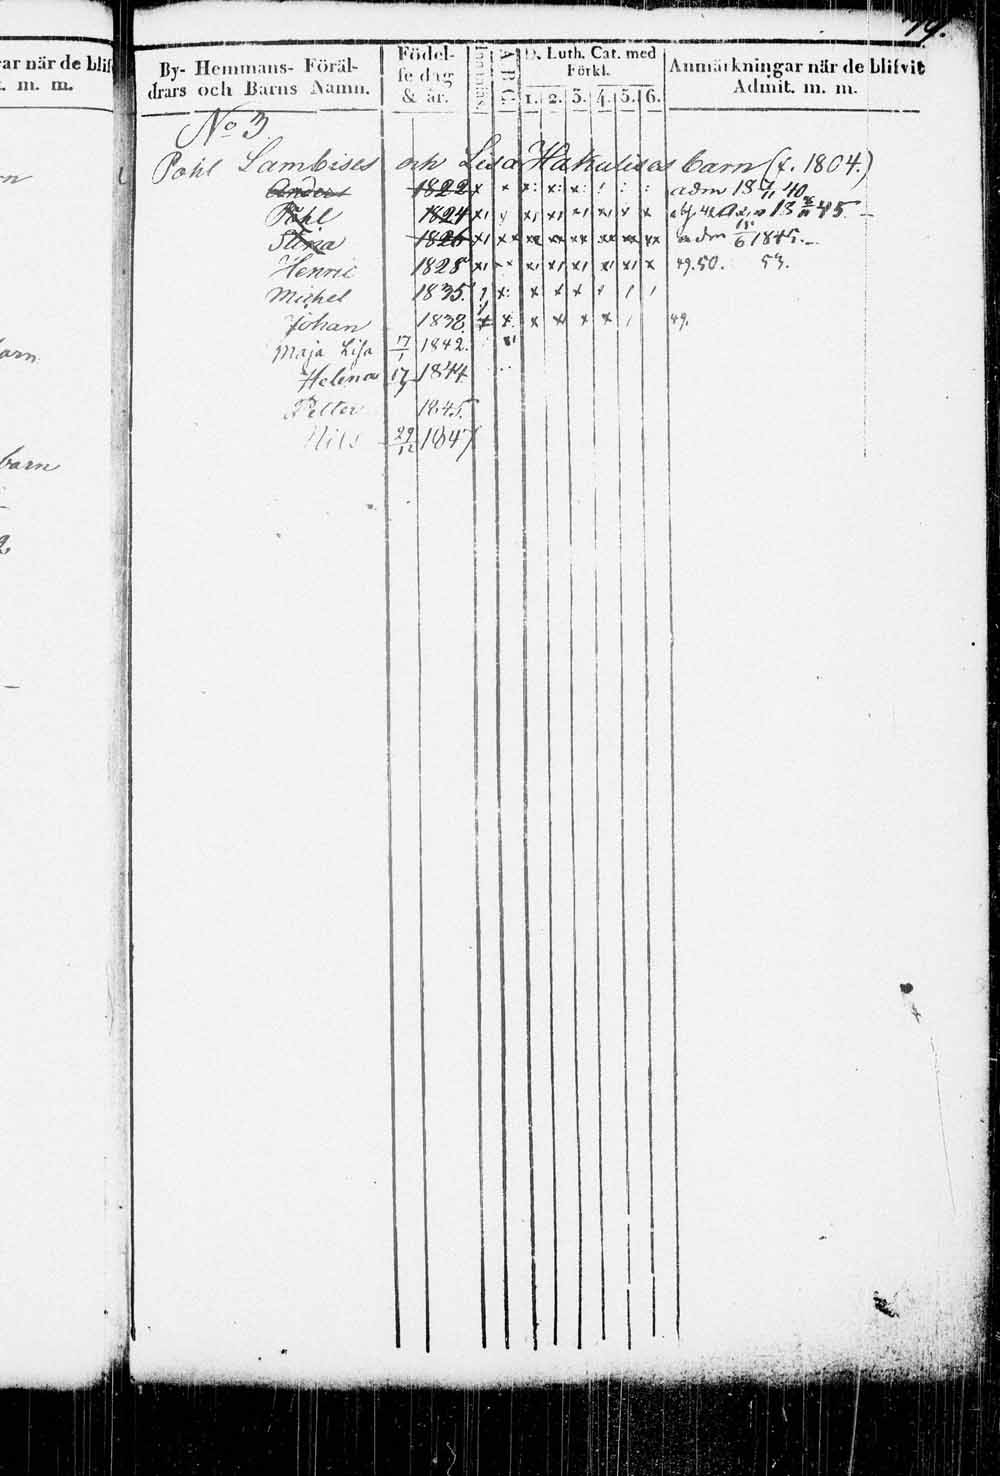 79.
ar när de blif
t. m. m.
rn
arn
barn
By- Hemmans- Föräl-
drars och Barns Namn.
Födel-
se dag
& år.
A B C
D. Luth. Cat. med
Förkl.
1. 2. 3. 4. 5. 6.
Anmärkningar när de blifvit
Admit. m. m.
No 3
Pohl Lambises och Lisa Hakulisas barn (f. 1804.)
Anders 1822 x x x: x: x: : : : adm 18 7/11 40
Påhl 1824 x x x x 45
Stina 1826 x x x xx xx xx xx xx adm 15/6 1845.
Henric 1828 x x x x x x x x 49.50. 53.
Michel 1835. x x x x
Johan 1838 x x x x x x 49.
Maja Lisa 17/1 1842.
Helena 17 1844
Petter 1845.
Nils 29/12 1847